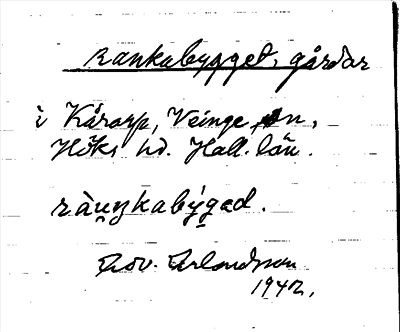 Rankabygget, gårdar
i Kårarp, Veinge sn,
Höks hd. Hall. län.
ràu̯ŋkabýgəd.
Erlandsson
1942.